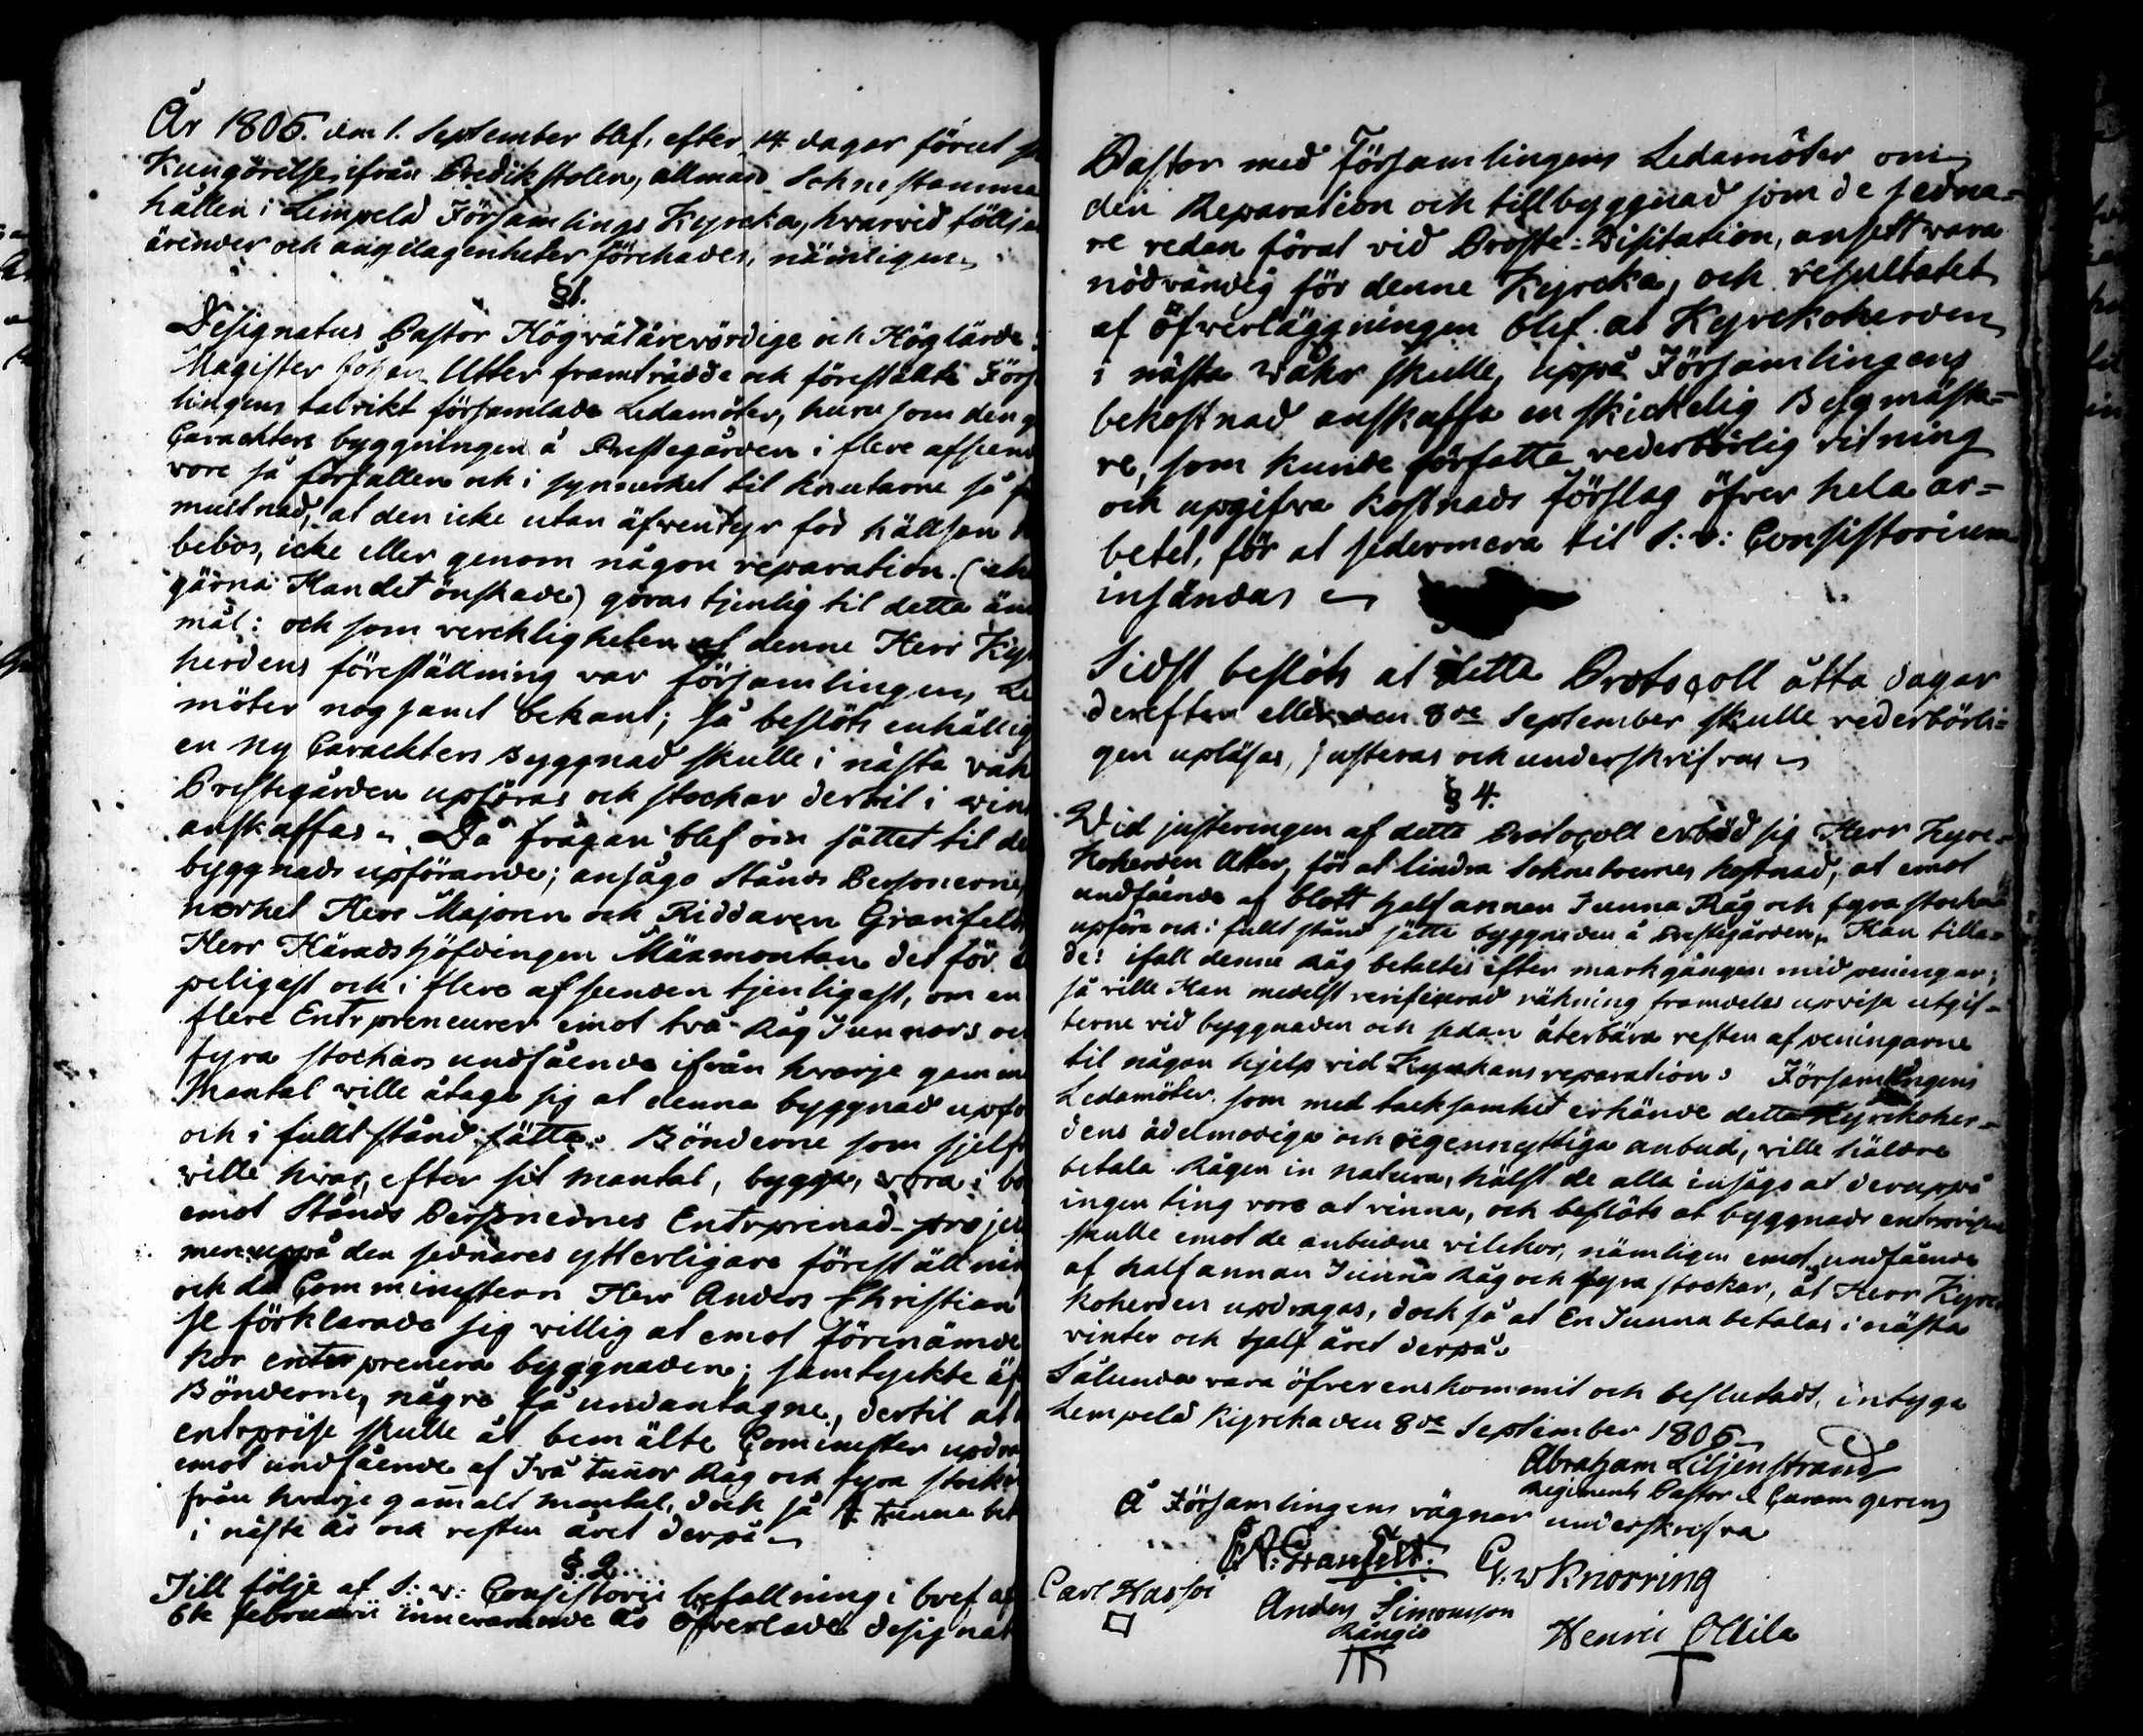 År 1805. den 1. September blef, efter 14 dagar förut
Kungörelse ifrån Predikstolen, allmän Sokne stamma
hållen i Lempelä Församlings Kyrcka, hvarvid följan
ärender och angelägenheter förehades, nämligen
§1.
Designatus Pastor Högvälärevördige och Höglärde
Magister Johan Utter framträdde och förestälte Förs
lingens talrikt församlade Ledamöter, huru som den g
Carachters byggningen å Prestegården i flere afseend
vore så förfallen och i synnerhet til knutarne så
multnad, at den icke utan äfventyr för hällsan
bebos, icke eller genom någon reparation (
gärna Han det önskade) göras tjenlig til detta än
mål: och som verckligheten af denne Herr Kyr
herdens föreställning var församlingens Le
möter nogsamt bekant; så beslöts enhällig
en ny Carachters Byggnad skulle i nästa våh
Prestegården upföras och stockar dertil i vin
anskaffas. Då frågan blef om sättet til de
byggnads upförande; ansågo Stånds Personerne,
nerhet Herr Majoren och Riddaren Granfelt
Herr Häradshöfdingen Mäxmontan det för
peligast och i flere afseenden tjenligast, om en
flere Entrpreneurer emot två Råg Tunnors oc
fyra stockars undfående ifrån hvarje gamm
Mantal ville åtaga sig at denna byggnad upfö
och i fullt stånd sätta. Bönderne som sjelf
ville hvar, efter sit mantal, bygga, vora i bö
emot Stånds Personernes Entrprenad-projec
men uppå den sednares ytterligare föreställnin
och då Comministern Herr Anders Christian
se förklarade sig villig at emot förenämde
kor enterprenera byggnaden; samtyckte äf
Bönderne, några få undantagne, dertil at
entrprise skulle åt bemälte Comminister updra
emot undfående af Två tunnor Råg och fyra stock
från hvarje gamalt mantal, dock så 1 tunna bet
i näste år och resten året derpå
§.2.
Till följe af S: v: Consistorii befallning i bref af
6te februarii innevarande år öfverlade design at
Pastor med Församlingens Ledamöter om
den Reparation och tillbyggnad som de sedna=
re redan förut vid Proste-Visitation, ansett vara
nödvändig för denne Kyrcka, och resultatet
af öfverläggningen blef at Kyrckoherden
i nästa Våhr skulle, uppå Församlingens
bekostnad anskaffa en skickelig Byggmästa=
re, som kunde författa vederbörlig ritning
och upgifva kostnads förslag öfver hela ar=
betet, för at sedermera til S: v: Consistorium
insändas
Sidst beslöts at detta Protocoll åtta dagar
derefter eller den 8de September skulle vederbörli=
gen upläsas, justeras och underskrifvas
§ 4.
Vid justeringen af detta Protocoll erböd sig Herr Kyrc=
koherden Utter, för at lindra Sokneboernes kostnad, at emot
undfående af blott half annan Tunna Råg och fyra stockar
upföra och i fullt stånd sätta byggnaden å Prestegården, Han tilla=
de: ifall denne Råg betaltes efter markgången med peningar;
så ville Han medelst verificerad räkning framdeles upvisa utgif=
terne vid byggnaden och sedan återbära resten af peningarne
til någon hjelp vid Kyrckans reparation. Församlingens
Ledamöter, som med tacksamhet erkände detta Kyrckoher=
dens ädelmodiga och oegennyttiga anbud, ville häldre
betala Rågen in natura, hälst de alla insågo at deruppå
ingen ting vore at vinna, och beslöts at byggnads entreprisen
skulle emot de anbudne vilckor, nämligen emot undfående
af half annan Tunna Råg och fyra stockar, åt Herr Kyrc
koherden updragas, dock så at En Tunna betalas i nästa
vinter och half året derpå.
Sålunda vara öfverenskommit och beslutadt, intyga
Lempelä Kyrcka den 8de September 1805
Abraham Liljenstrand
Regiments Pastor & Curam gerens
Å Församlingens vägnar underskrifva
Granfelt. G. v Knorring
Carl Hassoi Anders Simonsson
Rångis Henric Ollila